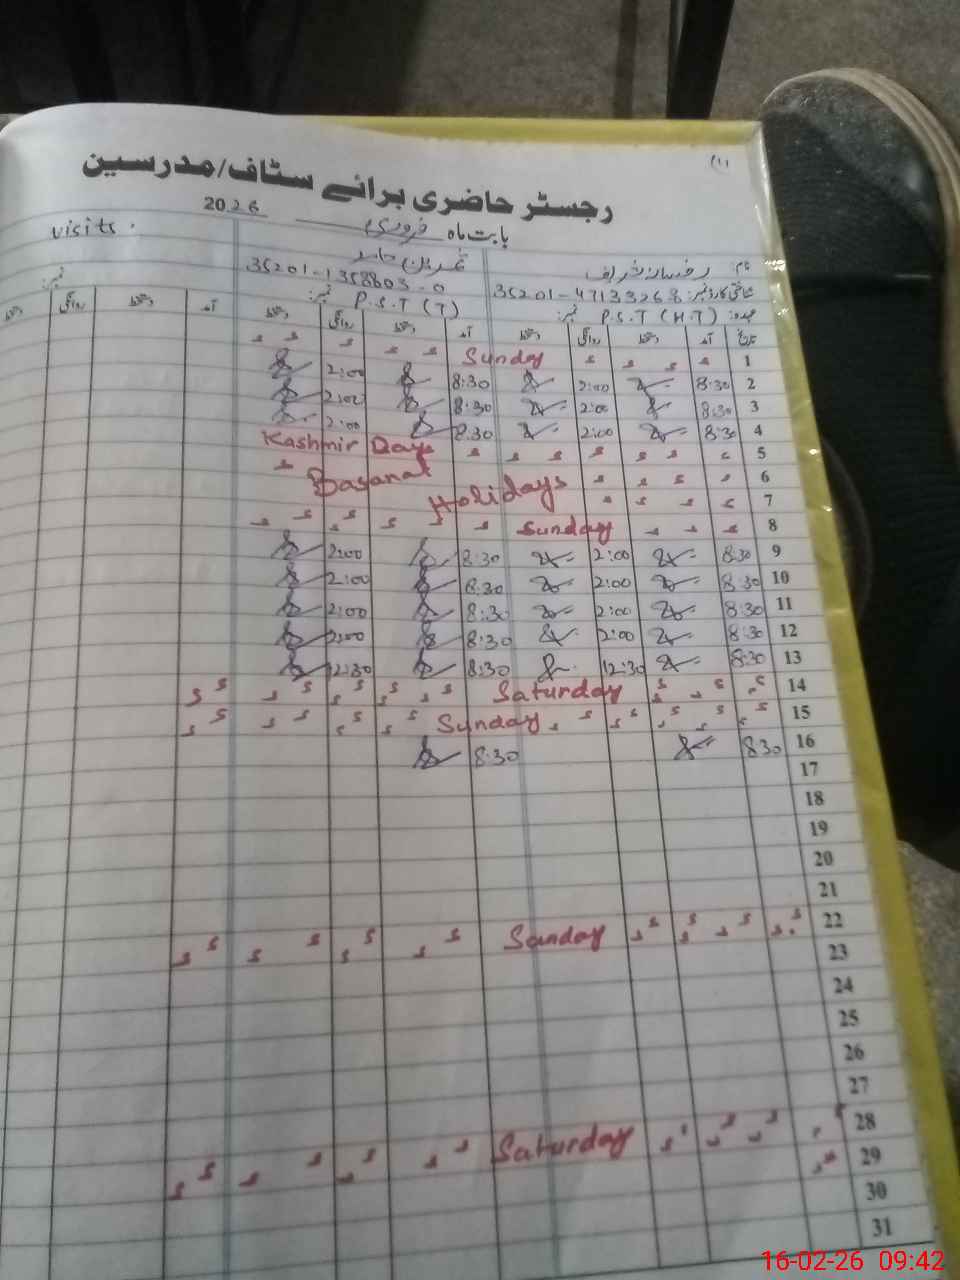 (11)
رجسٹر حاضری برائے سٹاف/مدرسین
بابت ماہ فروری 2026
visits.
نام: رخسانہ شریف
شناختی کارڈ نمبر: 35201-4713326-8 35201-1358803-0
عہدہ: P.S.T (H.T) نمبر: P.S.T (T) نمبر: نمبر:
تاریخ آمد دستخط روانگی دستخط آمد دستخط روانگی دستخط آمد دستخط روانگی دستخط
1 Sunday
2 8:30 2:00 8:30 2:00
3 8:30 2:00 8:30 2:00
4 8:30 2:00 8:30 2:00
5 Kashmir Day
6 Basanat
7 Holidays
8 Sunday
9 8:30 2:00 8:30 2:00
10 8:30 2:00 8:30 2:00
11 8:30 2:00 8:30 2:00
12 8:30 2:00 8:30 2:00
13 8:30 12:30 8:30 12:30
14 Saturday
15 Sunday
16 8:30 8:30
17
18
19
20
21
22 Sunday
23
24
25
26
27
28 Saturday
29
30
31
16-02-26 09:42